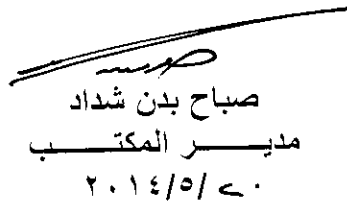 صباح بدن شداد
مديـــر المكتـــب
٢٠١٤/٥/٢٠